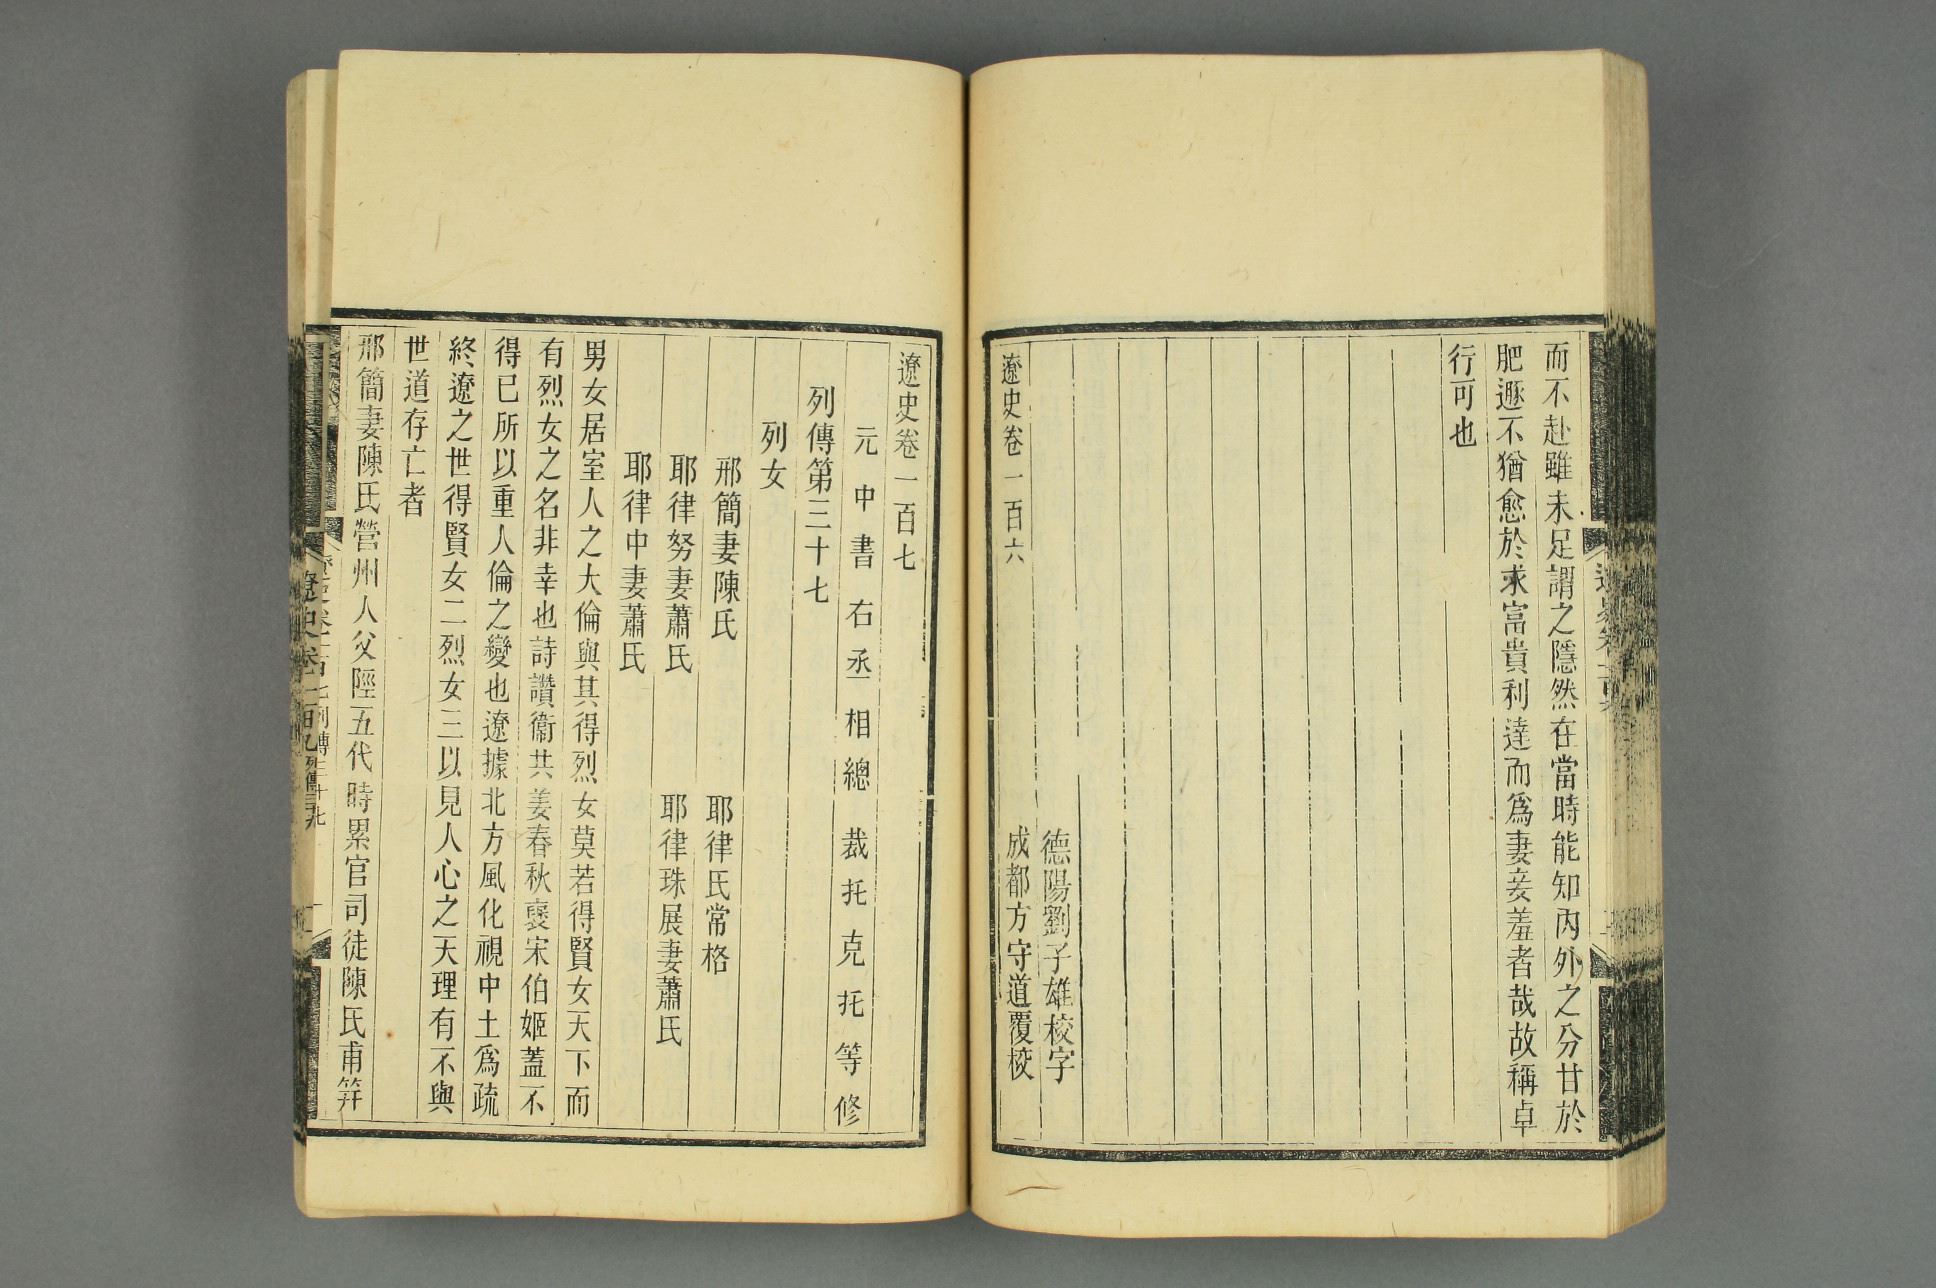 而不赴雖未足謂之隱然在當時能知內外之分甘於
肥遯不猶愈於求富貴利達而爲妻妾羞者哉故稱卓
行可也
德陽劉子雄校字
遼史卷一百六
成都方守道覆校
遼史卷一百七
元中書右丞相總裁托克托等修
列傳第三十七
列女
邢簡妻陳氏
耶律氏常格
耶律努妻蕭氏
耶律珠展妻蕭氏
耶律中妻蕭氏
男女居室人之大倫與其得烈女莫若得賢女天下而
有烈女之名非幸也詩讚衞共姜春秋襃宋伯姬蓋不
得已所以重人倫之變也遼據北方風化視中土爲疏
終遼之世得賢女二烈女三以見人心之天理有不與
世道存亡者
邢簡妻陳氏營州人父陘五代時累官司徒陳氏甫笄